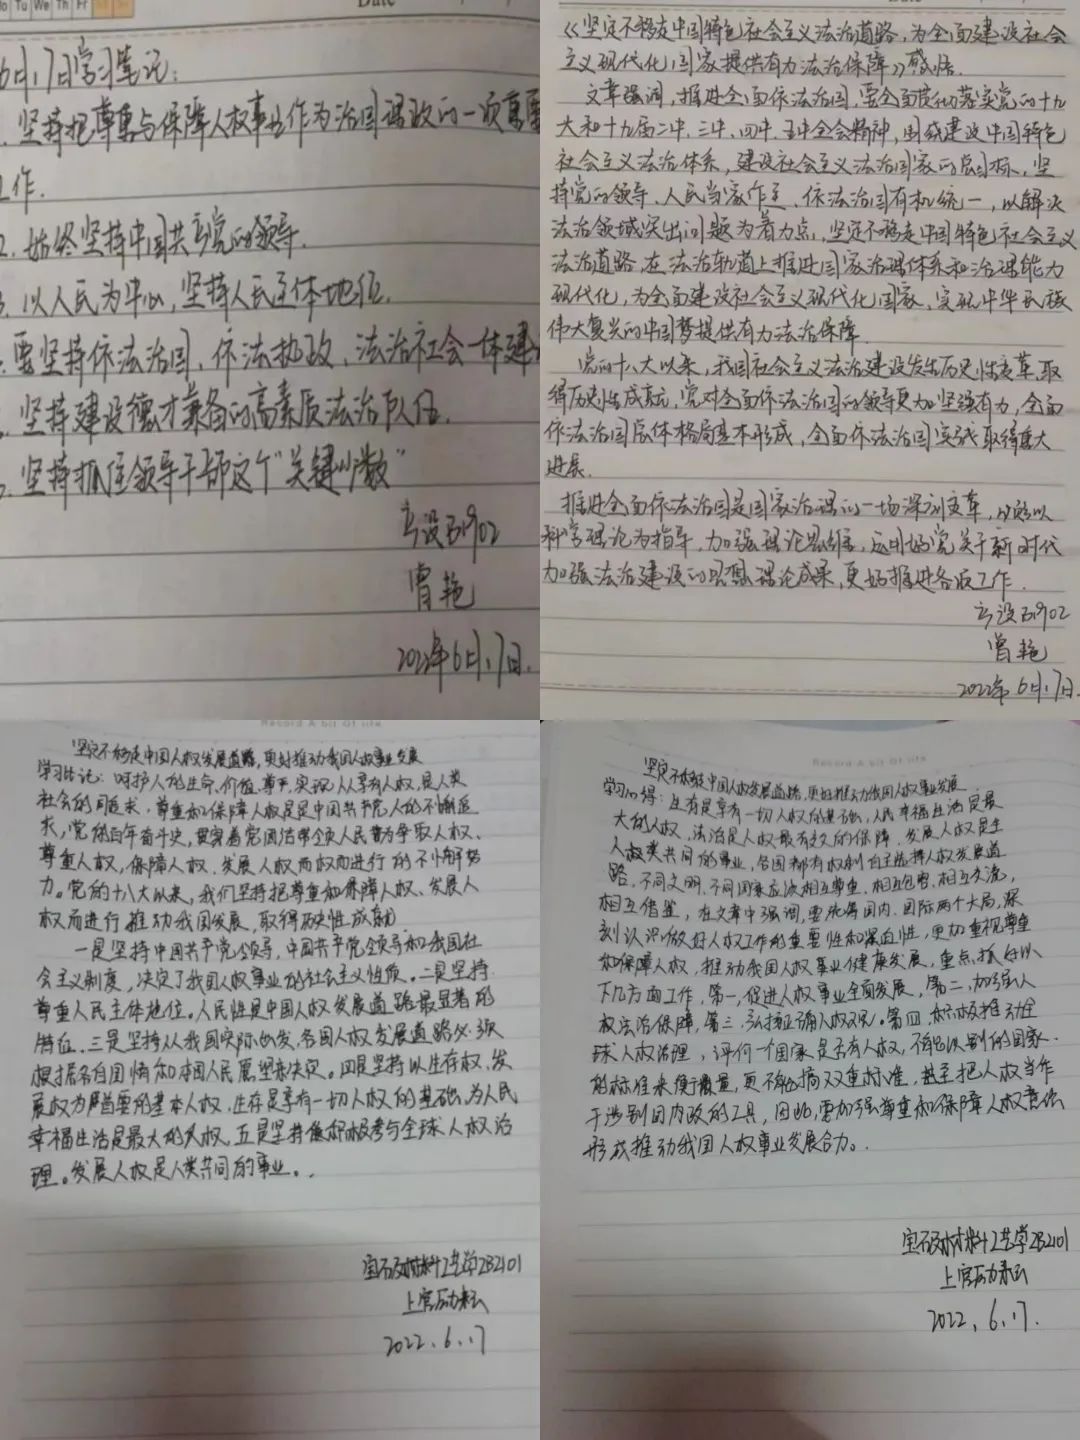 Mo Tu We Th Fr
Date
6月17日学习笔记:
坚持把尊重与保障人权事业作为治国理政的一项重要
工作.
2.始终坚持中国共产党的领导.
3.以人民为中心,坚持人民主体地位.
要坚持依法治国、依法执政、法治社会一体建
坚持建设德才兼备的高素质法治队伍.
坚持抓住领导干部这个"关键少数"
产设B1902
曾艳
2022年6月17日.
《坚定不移走中国特色社会主义法治道路,为全面建设社会
主义现代化国家提供有力法治保障》感悟.
文章强调,推进全面依法治国,要全面贯彻落实党的十九
大和十九届二中、三中、四中、五中全会精神,围绕建设中国特色
社会主义法治体系,建设社会主义法治国家的总目标,坚
持党的领导、人民当家作主、依法治国有机统一,以解决
法治领域突出问题为着力点,坚定不移走中国特色社会主义
法治道路,在法治轨道上推进国家治理体系和治理能力
现代化,为全面建设社会主义现代化国家,实现中华民族
伟大复兴的中国梦提供有力法治保障.
党的十八大以来,我国社会主义法治建设发生历史性变革,取
得历史性成就,党对全面依法治国的领导更加坚强有力,全面
依法治国总体格局基本形成,全面依法治国实践取得重大
进展.
推进全面依法治国是国家治理的一场深刻变革,必须以
科学理论为指导,加强理论思维,运用好党关于新时代
加强法治建设的思想理论成果,更好推进各版工作.
产设B1902
曾艳
2022年6月17日
Record A bit Of life
坚定不移走中国人权发展道路,更好推动我国人权事业发展
学习笔记:呵护人的生命、价值、尊严,实现人人享有人权,是人类
社会的同追求,尊重和保障人权是是中国共产党人的不懈追
求,党的百年奋斗史,贯穿着党团结带领人民为争取人权、
尊重人权,保障人权、发展人权而权而进行的不懈努
力。党的十八大以来,我们坚持把尊重和保障人权、发展人
权而进行推动我国发展,取得历史性成就
一是坚持中国共产党领导,中国共产党领导和我国社
会主义制度,决定了我国人权事业的社会主义性质。二是坚持
尊重人民主体地位。人民性是中国人权发展道路最显著的
特征.三是坚持从我国实际出发,各国人权发展道路必须
根据各自国情和本国人民愿望来决定。四是坚持以生存权、发
展权为首要的基本人权,生存是享有一切人权的基础,为人民
幸福生活是最大的人权,五是坚持积极参与全球人权治
理。发展人权是人类共同的事业。
宝石及材料工艺学ZB2101
上官励耘
2022、6、17
Record A bit Of life
坚定不移走中国人权发展道路,更好推动我国人权事业发展
学习心得:生存是享有一切人权的基础,人民幸福生活是最
大的人权,法治是人权最有效的保障,发展人权是全
人权类共同的事业,各国都有权利自主选择人权发展道
路,不同文明、不同国家应该相互尊重、相互包容、相互交流,
相互借鉴,在文章中强调,要统筹国内、国际两个大局,深
刻认识做好人权工作的重要性和紧迫性,更加重视尊重
和保障人权,推动我国人权事业健康发展,重点抓好以
下几方面工作,第一,促进人权事业全面发展,第二,加强人
权法治保障,第三,弘扬正确人权观。第四,积极推动全
球人权治理,评价一个国家是否有人权,不能以别的国家
的标准来衡量,更不能搞双重标准,甚至把人权当作
干涉别国内政的工具,因此,要加强尊重和保障人权意识
形成推动我国人权事业发展合力。
宝石及材料工艺学ZB2101
上官励耘
2022、6、17.